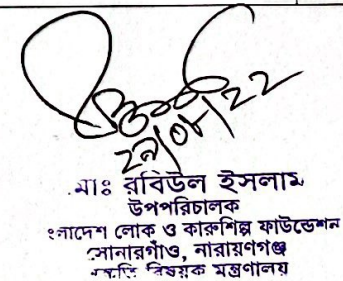 ২৯/০৮/২২
মাঃ রবিউল ইসলাম
উপপরিচালক
ংলাদেশ লোক ও কারুশিল্প ফাউন্ডেশন
সোনারগাঁও, নারায়ণগঞ্জ
বিষয়ক মন্ত্রণালয়